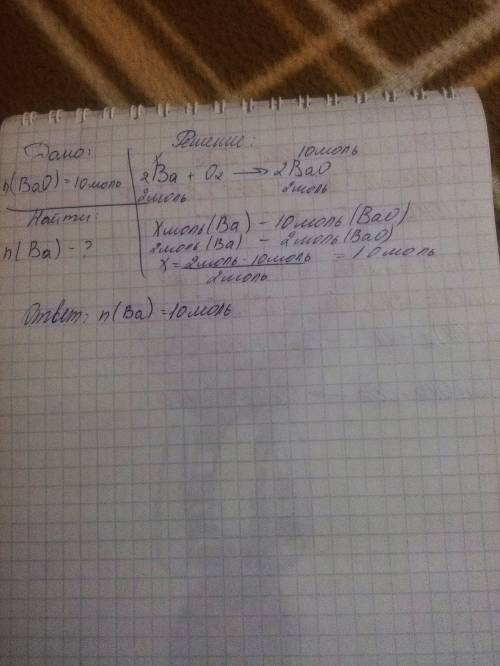 Дано:
n(BaO) = 10 моль
Найти:
n(Ba) - ?
Решение:
x 10 моль
2Ba + O2 → 2BaO
2 моль 2 моль
x моль (Ba) - 10 моль (BaO)
2 моль (Ba) - 2 моль (BaO)
x = 2 моль · 10 моль = 10 моль
2 моль
Ответ: n(Ba) = 10 моль